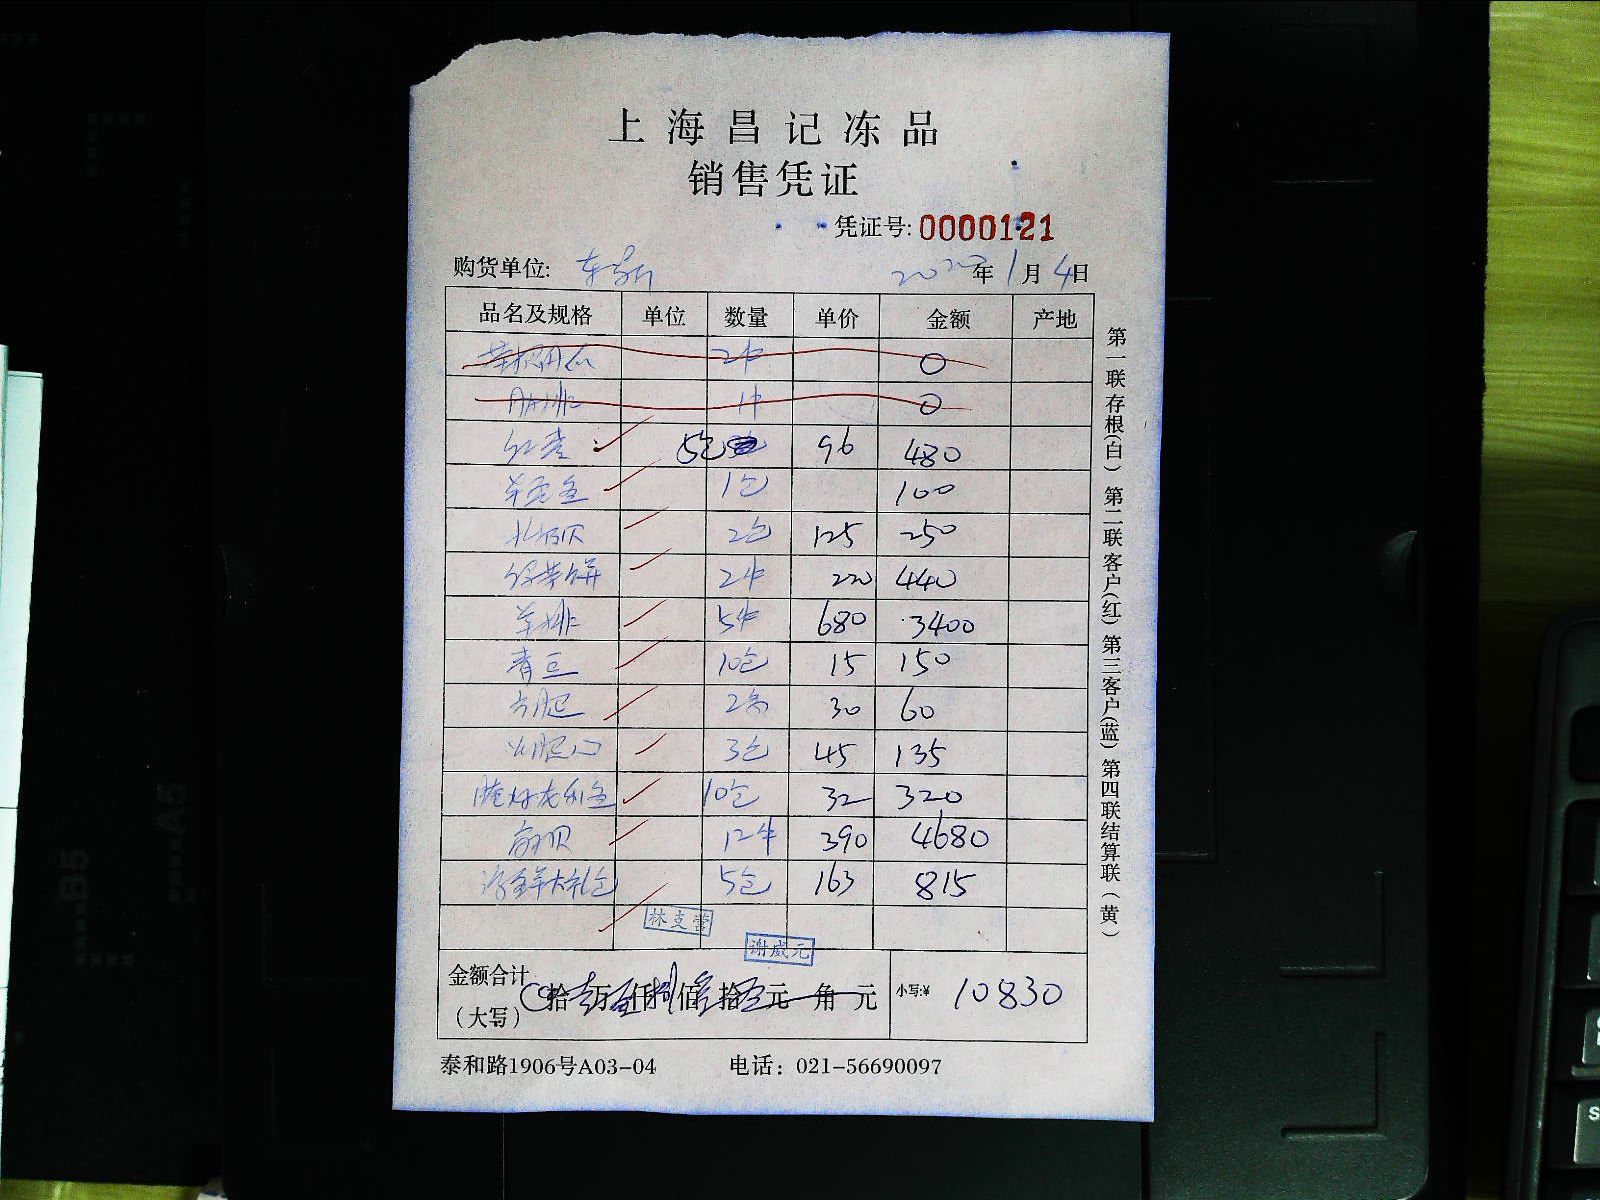 上海昌记冻品
销售凭证
凭证号:0000121
购货单位: 年1月4日
品名及规格 单位 数量 单价 金额 产地
2件 0
1件 0
5包 96 480
1包 100
北极贝 2包 125 250
2件 220 440
羊排 5件 680 3400
青豆 10包 15 150
方腿 2条 30 60
火腿 3包 45 135
腌好龙利鱼 10包 32 320
扇贝 12件 390 4680
海鲜大礼包 5包 163 815
林支蕾
谢威元
金额合计(大写) 拾 万 仟 佰 拾 元 角 元 小写:¥ 10830
泰和路1906号A03-04 电话：021-56690097
第一联存根(白) 第二联客户(红) 第三客户(蓝) 第四联结算联(黄)
B5
A5